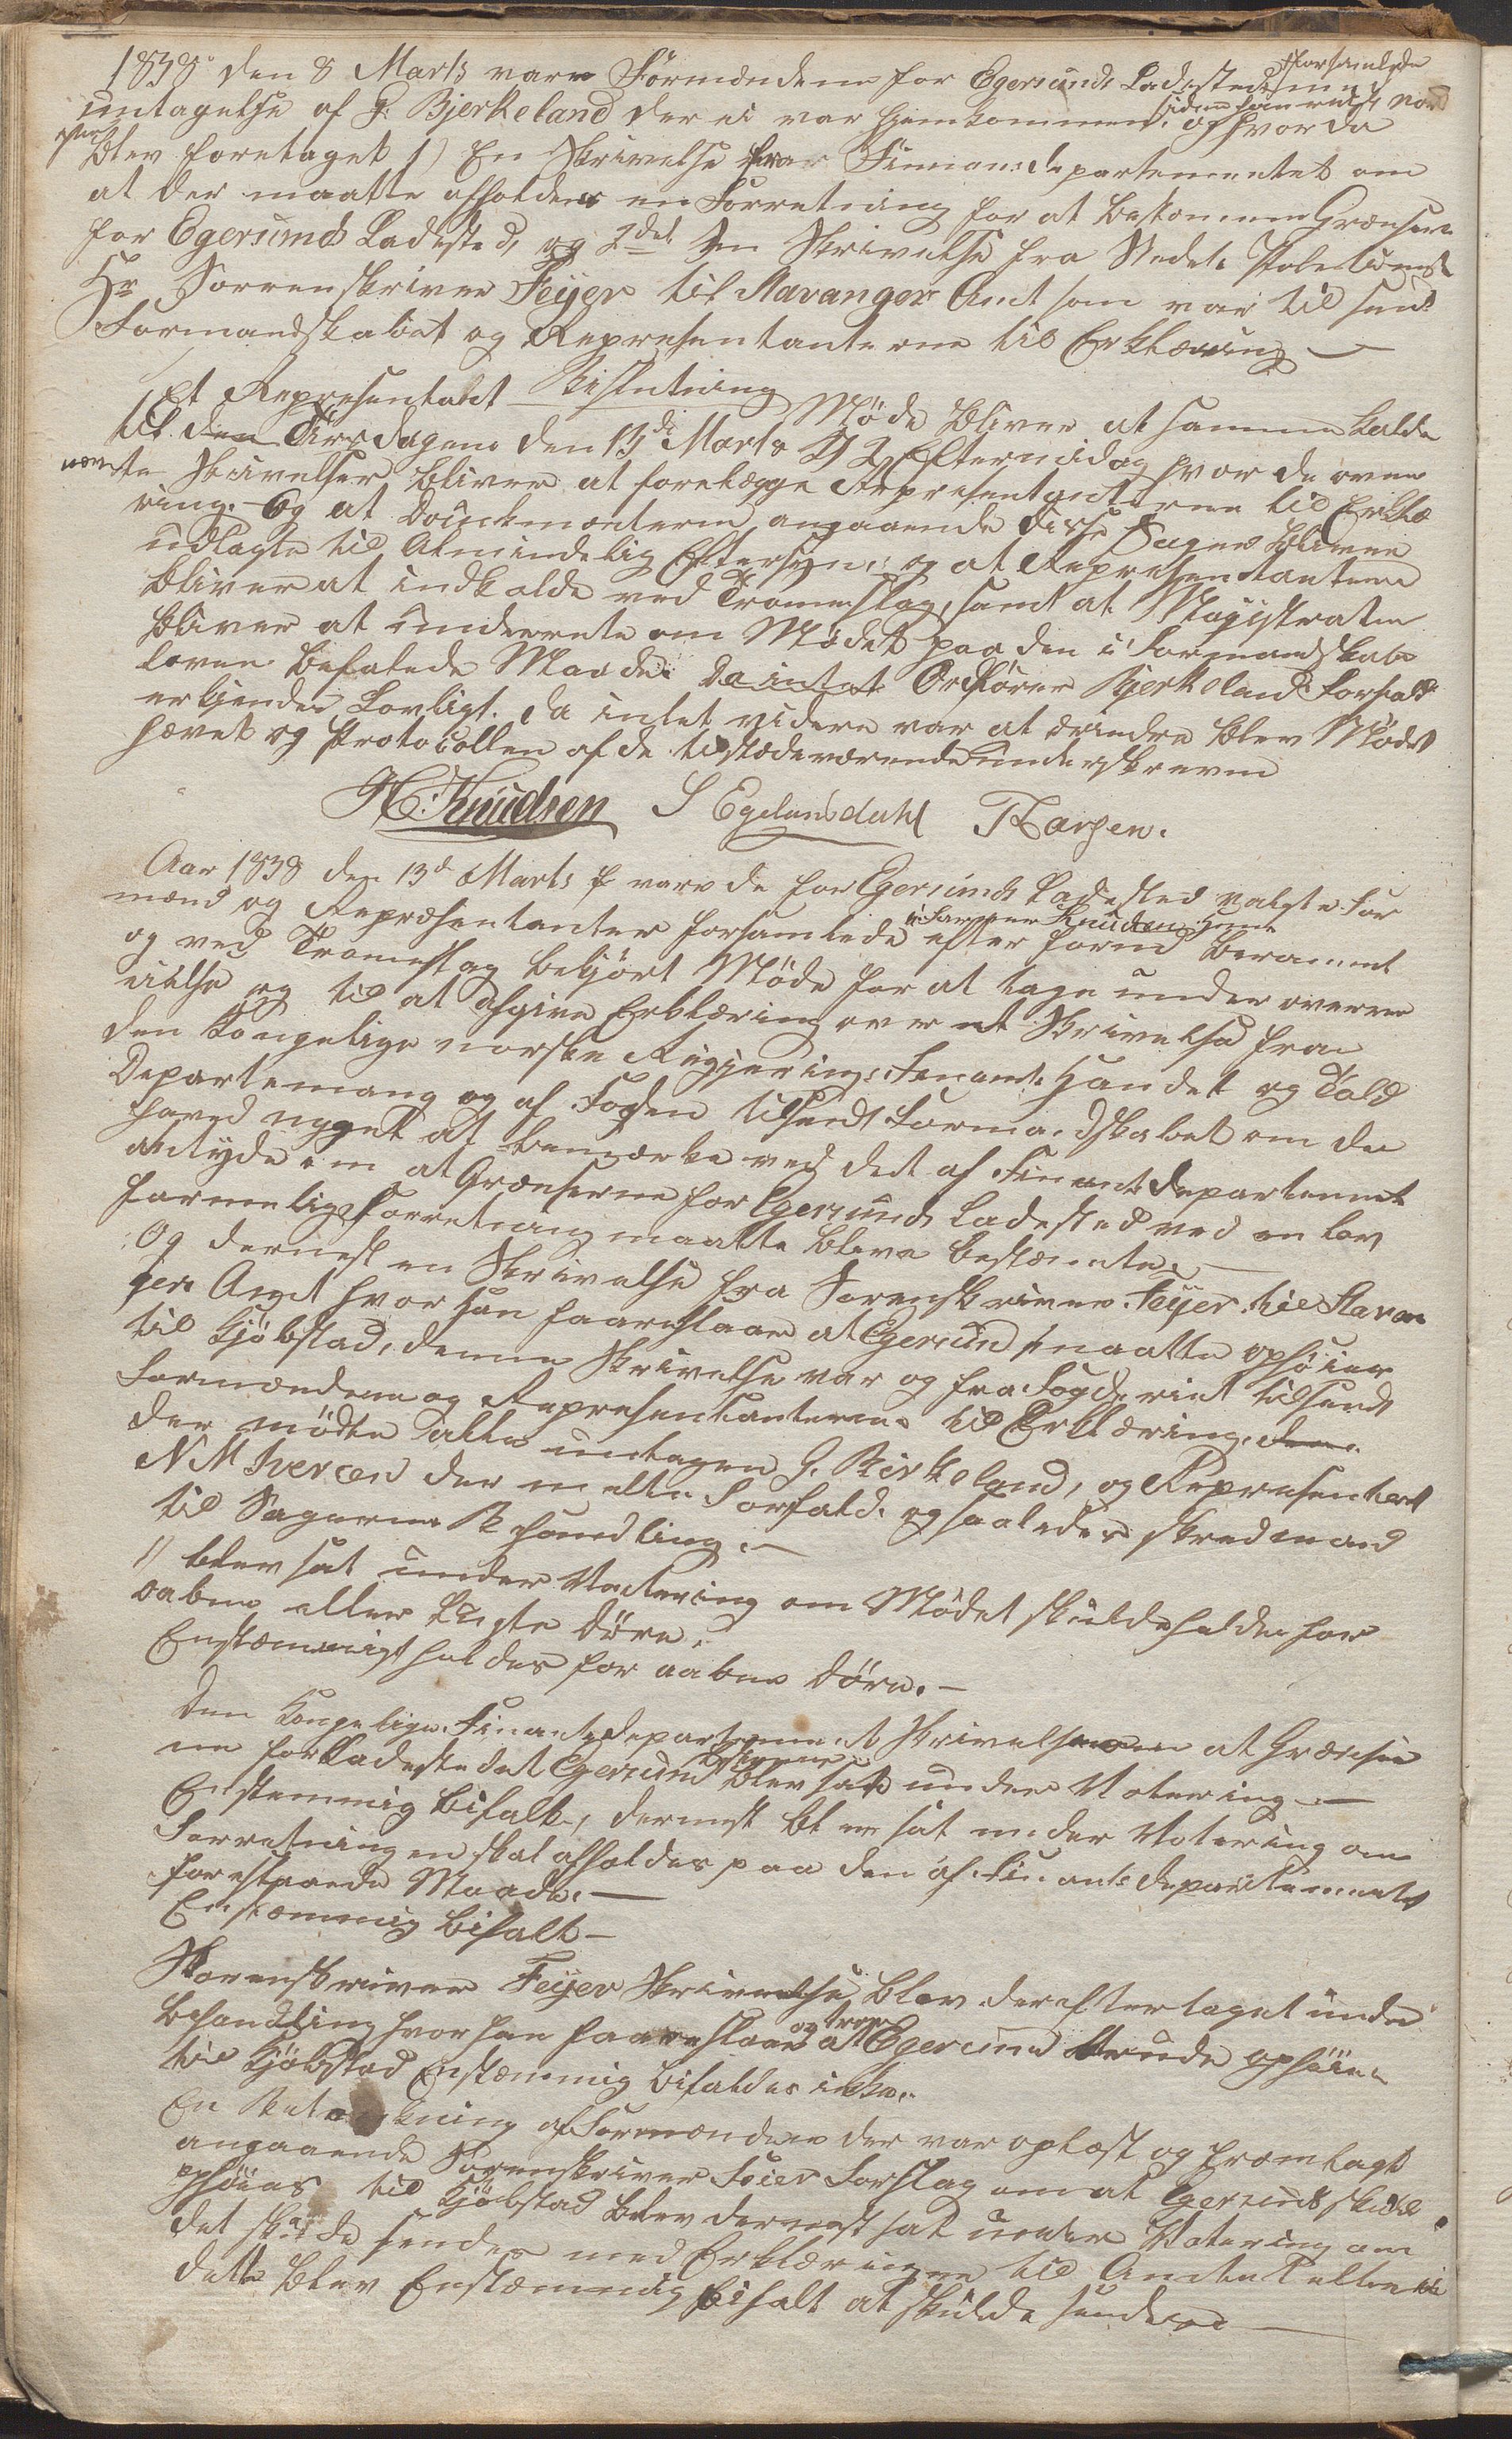 1838 den 8 Marts vare Formændene for Egersunds Ladested forsamlede med
untagelse af G. Bjerkeland der ei var hjemkommen siden han reiste nord og hvor da
efter blev foretaget 1) En Skrivelse fra Finansdepartementet om
at der maatte afholdes en Forretning for at bestemme Grænserne
for Egersunds Ladested, og 2det En Skrivelse fra Stedets
Hr Sorrenskriver Feyer til Stavanger Amt som var til sendt
Formandskabet og Representanterne til Erklæring —
Beslutning
Et Representant Møde bliver at sammenkalde
til den Tirsdagen den 13de Marts Kl 2 Eftermidag hvor de oven
nævnte Skrivelser bliver at forelægge Representanterne til Erklæ
ring. – Og at Douckmenterne angaaende disse Sager bliver
udlagte til Almindelig Eftersyn, og at Representanterne
bliver at indkalde ved Tromeslag, samt at Magistraten
bliver at underrete om Mødet paa den i Formandskabs
loven befalede Maade. Da intet Ordfører Bjerkelands Forfald
erkjendes Lovligt. da intet videre var at erindre blev Mødet
hævet og Protocollen af de tilstædeværende underskreven
H. Knudsen S Egelandsdahl T Larsen.
Aar 1838 den 13de Marts vare de for Egersunds Ladested valgte For
mænd og Repræsentanter forsamlede i Farver Knudsens Huus efter forud berammet
og ved Tromeslag bekjört Möde for at tage under overve
ielse og til at afgive Erklæring over et Skrivelse fra
den Kongelige norske Regjerings Finants Handels og Told
Departemang og af Fogden tilsendt Formandskabet om de
havde noget at bemærke ved det af Finantsdepartemnet
antydede om at Grænserne for Egersunds Ladested ved en lov
formelig Forretning maatte blive bestemte. —
Og dernest en Skrivelse fra Sorenskriver Feyer til Stavan
gers Amt hvor han faareslaar at Egersund maatte ophöies
til Kjöbstad, denne Skrivelse var og fra Fogderiet tilsendt
Formændene og Representanterne til Erklæring. den
der mödte alle untagen G. Birkeland, og Representant
N M Ivercen der meldte Forfald. og saaledes skred mand
til Sagernes Behandling. —
1) blev sat under Votering om Mødet skulde holdes for
aabne eller lugte Döre.
Enstæmmigt holdes for aabne Döre. —
Den Kongelige Finantsdepartement Skrivelse om at Grænser
ne for Ladestedet Egersund blev sat under Votering —
Enstemmig bifalt, dernest blev sat under Votering om
Forretningen skal afholdes paa den af Finantsdepartementet
forestaaede Maade. —
Enstæmmig bifalt —
Sorenskriver Feyer Skrivelse blev derefter taget under
behandling hvor han faareslaar at Egersund burde ophöies
til Kjöbstad Enstæmmig bifaldes ikke.
En Betænkning af Formændene der var oplæst og fremlagt
angaaende Sorenskriver Feier Forslag om at Egersund skulde
ophöies til Kjöbstad blev dernest sat under Votering om
det skulde sendes med Erklæringen til Amtet
dette blev Enstæmmig bifalt at skulde sendes —